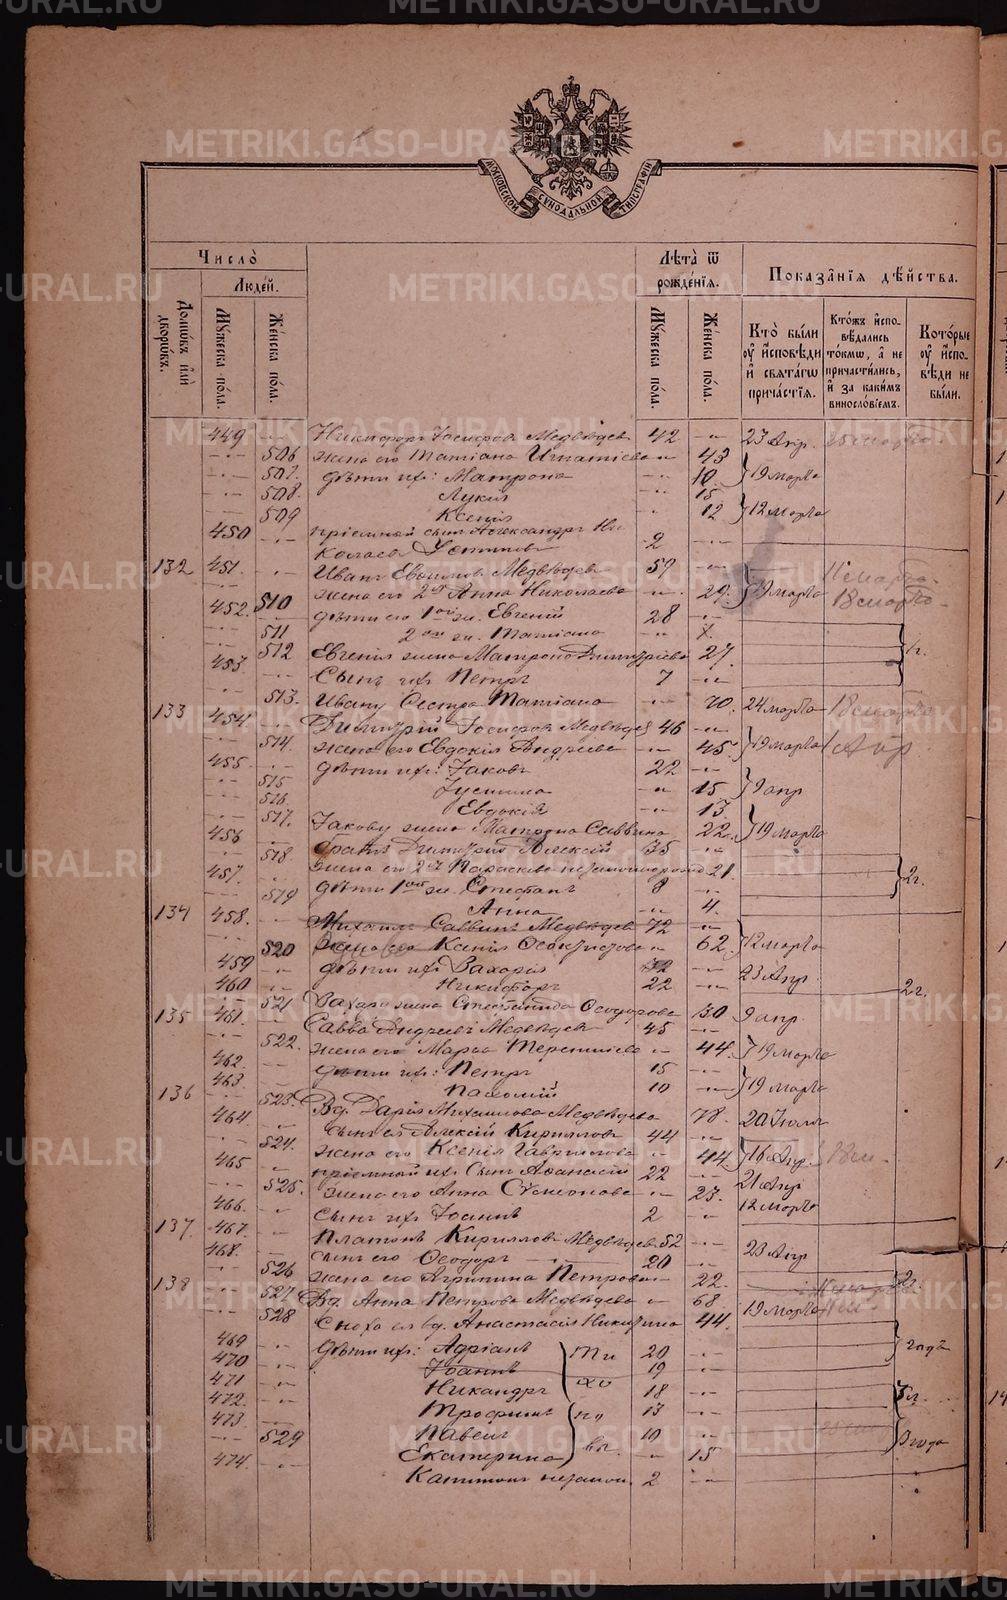 МОСКОВСКОЙ СУНОДАЛЬНОЙ ТИПОГРАФІИ
Число̀
Людéй.
Домѡвъ илѝ дворѡвъ.
Мꙋжеска пóла.
Жéнска пóла.
Лѣта̀ ѿ рождéнїѧ.
Мꙋжеска пóла.
Жéнска пóла.
Показа̑нїѧ дѣйства.
Кто̀ бы́ли оу҆ и҆сповѣди и҆ свѧта́гѡ причáстїѧ.
Кто́жъ и҆сповѣдались то́кмѡ, а҆ не причасти́лись, и҆ за каки́мъ винословїемъ.
Кото́рые оу҆ и҆сповѣди не бы́ли.
449 Никифоръ Іосифовъ Медвѣдевъ 42 23 Апр.
506 жена его Татіана Игнатіева 43
507. дѣти ихъ: Матрона 10. 19 марта
508. Лукія 15
509 Ксенія 12 12 марта
450 пріемный сынъ Александръ Ни-
колаевъ 2
132 451. Иванъ Медвѣдевъ 59 11 марта
510 жена его 2я Анна Николаева 29. 19 марта 18 марта
452. дѣти его 1ой ж. Евгеній 28
511 2ой ж. Татіана
512 Евгенія жена Матрона Димитріева 27 1 г.
453. Сынъ ихъ Петръ 7
513. Ивану Сестра Татіана 70. 24 марта 18 марта
133 454. Димитрій Іосифовъ Медвѣдев 46
514. жена его Евдокія Андреева 45. 19 марта Апр.
455. дѣти ихъ: Іаковъ 22
515 Іустина 15 9 апр
516. Евдокія 13
517. Іакову жена Матрона Саввина 22. 19 марта
456 братъ Димитрія Алексій 35
518. жена его 2я Параскева 21.
457. дѣти 1ой ж. Стефанъ 8 2 г.
519 Анна 4.
134 458. Михаилъ Саввинъ Медвѣдевъ 72
520 жена его Ксенія 62. 12 марта
459 дѣти ихъ Захарія 32 23 Апр.
460 Никифоръ 22
521 Захара жена Стефанида Ѳеодорова 30 9 апр. 2 г.
135 461. Савва Андреевъ Медвѣдевъ 45
522. жена его Марья Терентіева 44. 19 марта
462. дѣти ихъ: Петръ 15
463. Пахомій 10 19 марта
136 523. Вд. Дарія Михаилова Медвѣдева 78. 20 Іюля
464. Сынъ ея Алексій Кирилловъ 44
524. жена его Ксенія Гавриилова 44 16 Апр.
465 пріемный ихъ Сынъ Аѳанасій 22 21 Апр
525. жена его Анна Сѵмеонова 23. 12 марта
466. сынъ ихъ Іоаннъ 2
137. 467. Платонъ Кирилловъ Медвѣдевъ 52 23 Апр
468. сынъ его Ѳеодоръ 20
526 жена его Агрипина Петрова 22. 2 г.
138 527 Вд. Анна Петрова Медвѣдева 68 19 марта
528 Сноха ея вд. Анастасія Никитина 44.
469 дѣти ихъ: Адріанъ 20 года
470 Іоаннъ 19
471 Никандръ 18
472. Трофимъ 13
473. Павелъ 10
529 Екатерина 15
474. Капитонъ незакон. 2
METRIKI.GASO-URAL.RU